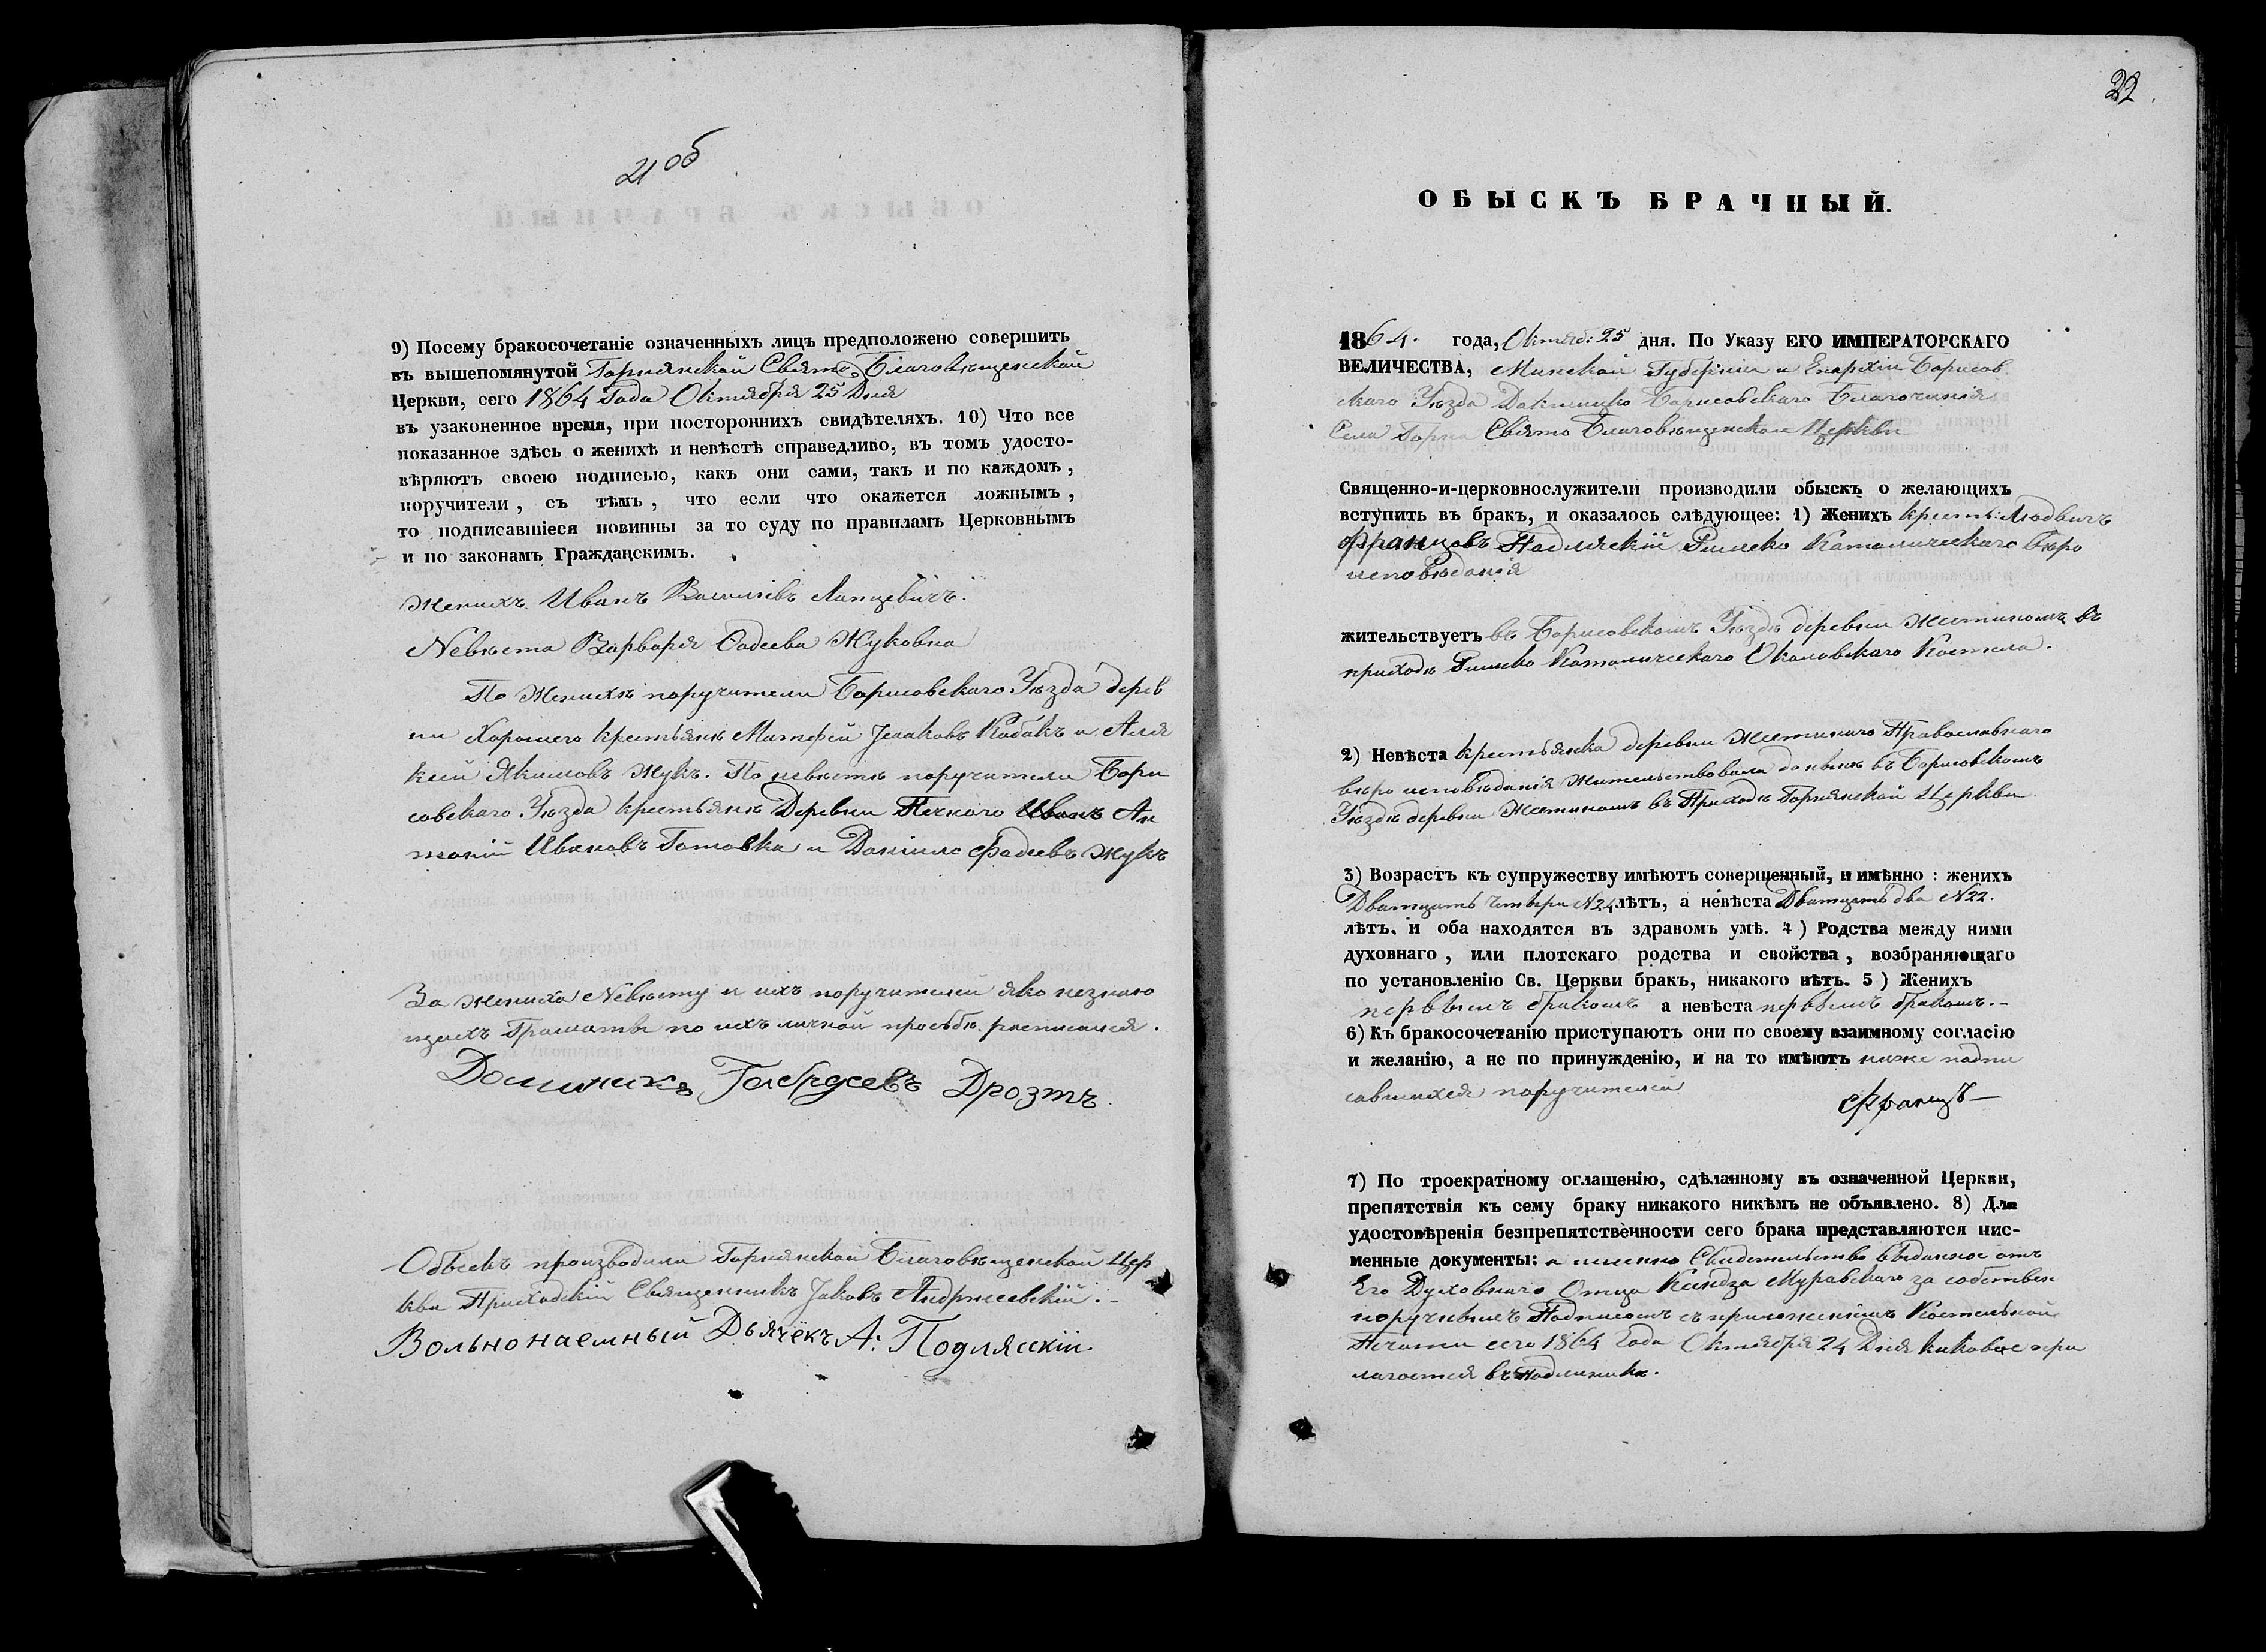 21 об
9) Посему бракосочетаніе означенныхъ лицъ предположено совершить
въ вышепомянутой Горнянской Свято Благовѣщенской
Церкви, сего 1864 Года Октября 25 Дня
въ узаконенное время, при постороннихъ свидѣтеляхъ. 10) Что все
показанное здѣсь о женихѣ и невѣстѣ справедливо, въ томъ удосто-
вѣряютъ своею подписью, какъ они сами, такъ и по каждомъ,
поручители, съ тѣмъ, что если что окажется ложнымъ,
то подписавшіеся повинны за то суду по правиламъ Церковнымъ
и по законамъ Гражданскимъ.
Женихъ Иванъ Василіевъ Лапцевичъ.
Невѣста Варвара Фадеева Жуковна
По Женихѣ поручители Борисовскаго Уѣзда дерев
ни Хорошего крестьяне Матфей Исаковъ Кабакъ и Але
ксѣй Якимовъ Жукъ. По невѣстѣ поручители Бори
совскаго Уѣзда крестьяне Деревни Иванъ Ан
тоній Ивановъ Готовка и Даніилъ Фадеевъ Жукъ
За Жениха Невѣсту и ихъ поручителей яко незнаю
щихъ Грамоты по ихъ личной просьбѣ расписался.
Доминикъ Дрозтъ.
Обыскъ производили Горнянской Благовѣщенской Цер
кви Приходскій Священникъ Іаковъ Андржеевскій.-
Вольнонаемный Дьячекъ А: Подлясскій.
22
ОБЫСКЪ БРАЧНЫЙ.
1864. года, Октяб: 25 дня. По Указу ЕГО ИМПЕРАТОРСКАГО
ВЕЛИЧЕСТВА, Минской Губерніи и Епархіи Борисов
скаго Уѣзда Докшицко Борисовскаго Благочинія
Села Горна Свято Благовѣщенской Церкви
Священно-и-церковнослужители производили обыскъ о желающихъ
вступить въ бракъ, и оказалось слѣдующее: 1) Женихъ крестъ: Людвигъ
Францовъ Подляскій Римско Католическаго вѣро
исповѣданія
жительствуетъ въ Борисовскомъ Уѣздѣ деревни Жестиномъ въ
приходѣ Римско Католическаго Околовскаго Костела.
2) Невѣста крестьянка деревни Жестинаго Православнаго
вѣро исповѣданія Жительствовала донынѣ въ Борисовскомъ
Уѣздѣ деревни Жестиномъ въ Приходѣ Горнянской Церкви
3) Возрастъ къ супружеству имѣютъ совершенный, и имѣнно: женихъ
Дватцать четыри №24 лѣтъ, а невѣста Дватцать два №22.
лѣтъ. и оба находятся въ здравомъ умѣ. 4) Родства между ними
духовнаго, или плотскаго родства и свойства, возбраняющаго
по установленію Св. Церкви бракъ, никакого нѣтъ. 5) Женихъ
первымъ бракомъ а невѣста первымъ бракомъ.-
6) Къ бракосочетанію приступаютъ они по своему взаимному согласію
и желанію, а не по принужденію, и на то имѣютъ ниже подпи
савшихся поручителей
Францъ-
7) По троекратному оглашенію, сдѣланному въ означенной Церкви,
препятствія къ сему браку никакого никѣмъ не объявлено. 8) Для
удостовѣренія безпрепятственности сего брака представляются пис-
менные документы: а именно Свидетельство выданное отъ
Его Духовнаго Отца Ксендза Муравскаго за собствен
норучнымъ Подписомъ съ приложеніемъ Костельной
Печати сего 1864 Года Октября 24 Дня каковое при
лагается въ подлинникѣ.